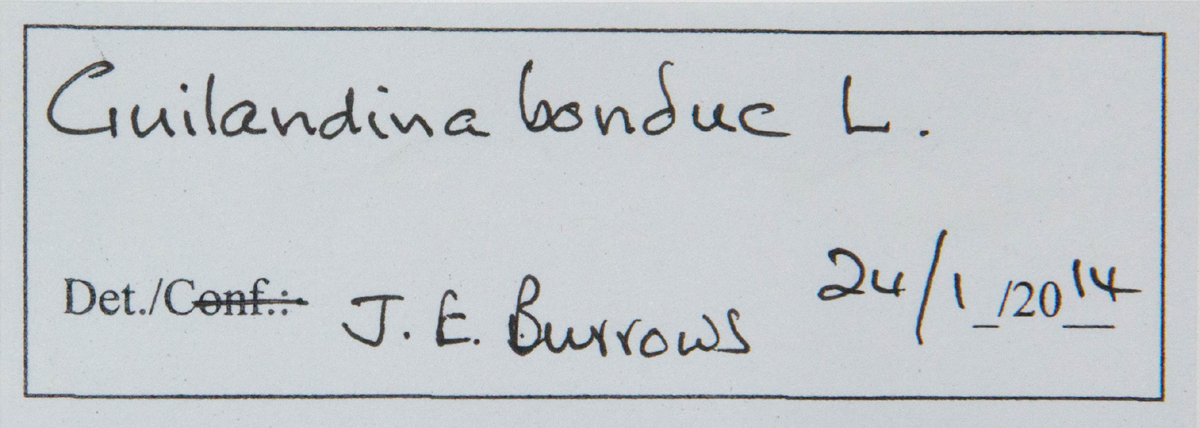 Guilandina bonduc L.
Det./Conf.: J. E. Burrows 24/1_/2014